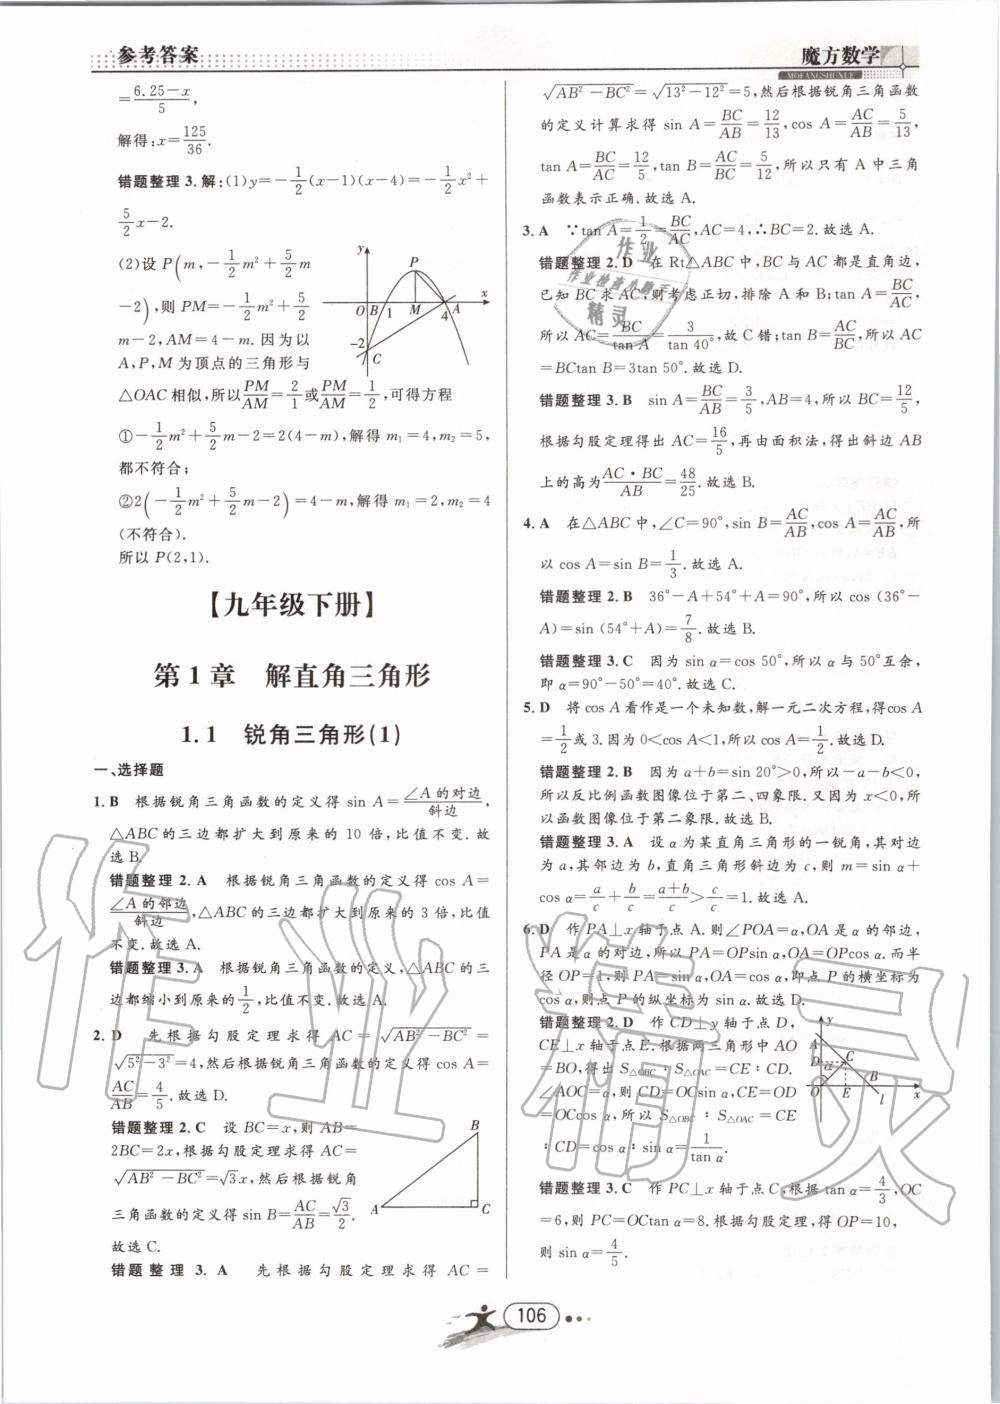 参考答案
魔方数学
MOFANGSHUXUE
=(6.25-x)/5,
解得:x=125/36.
错题整理 3.解:(1)y=-1/2(x-1)(x-4)=-1/2x²+
5/2x-2.
(2)设 P(m,-1/2m²+5/2m
-2),则 PM=-1/2m²+5/2
m-2,AM=4-m.因为以
A,P,M 为顶点的三角形与
△OAC 相似,所以PM/AM=2/1或PM/AM=1/2,可得方程
①-1/2m²+5/2m-2=2(4-m),解得 m₁=4,m₂=5,
都不符合;
②2(-1/2m²+5/2m-2)=4-m,解得 m₁=2,m₂=4
(不符合).
所以 P(2,1).
y
P
O
B
1
M
4
A
x
-2
C
【九年级下册】
第 1 章 解直角三角形
1.1 锐角三角形(1)
一、选择题
1. B 根据锐角三角函数的定义得 sin A=∠A的对边/斜边,
△ABC 的三边都扩大到原来的 10 倍,比值不变.故
选 B.
错题整理 2. A 根据锐角三角函数的定义得 cos A=
∠A的邻边/斜边,△ABC 的三边都扩大到原来的 3 倍,比值
不变.故选 A.
错题整理 3. A 根据锐角三角函数的定义,△ABC 的三
边都缩小到原来的1/2,比值不变.故选 A.
2. D 先根据勾股定理求得 AC=√(AB²-BC²)=
√(5²-3²)=4,然后根据锐角三角函数的定义得 cos A=
AC/AB=4/5.故选 D.
错题整理 2. C 设 BC=x,则 AB=
2BC=2x,根据勾股定理求得 AC=
√(AB²-BC²)=√3x,然后根据锐角
三角函数的定义得 sin B=AC/AB=√3/2.
故选 C.
B
A
C
错题整理 3. A 先根据勾股定理求得 AC=
√(AB²-BC²)=√(13²-12²)=5,然后根据锐角三角函数
的定义计算求得 sin A=BC/AB=12/13,cos A=AC/AB=5/13,
tan A=BC/AC=12/5,tan B=AC/BC=5/12,所以只有 A 中三角
函数表示正确.故选 A.
3. A ∵tan A=1/2=BC/AC,AC=4,∴BC=2.故选 A.
错题整理 2. D 在 Rt△ABC 中,BC 与 AC 都是直角边,
已知 BC 求 AC,则考虑正切,排除 A 和 B;tan A=BC/AC,
所以 AC=BC/tan A=3/tan 40°,故 C 错;tan B=AC/BC,所以 AC
=BCtan B=3tan 50°.故选 D.
错题整理 3. B sin A=BC/AB=3/5,AB=4,所以 BC=12/5,
根据勾股定理得出 AC=16/5,再由面积法,得出斜边 AB
上的高为AC·BC/AB=48/25.故选 B.
4. A 在△ABC 中,∠C=90°,sin B=AC/AB,cos A=AC/AB,所
以 cos A=sin B=1/3.故选 A.
错题整理 2. B 36°-A+54°+A=90°,所以 cos (36°-
A)=sin (54°+A)=7/8.故选 B.
错题整理 3. C 因为 sin α=cos 50°,所以 α 与 50°互余,
即 α=90°-50°=40°.故选 C.
5. D 将 cos A 看作是一个未知数,解一元二次方程,得cos A
=1/2或 3.因为 0<cos A<1,所以 cos A=1/2.故选 D.
错题整理 2. B 因为 a+b=sin 20°>0,所以-a-b<0,
所以反比例函数图像位于第二、四象限.又因为 x<0,所
以函数图像位于第二象限.故选 B.
错题整理 3. A 设 α 为某直角三角形的一锐角,其对边
为 a,其邻边为 b,直角三角形斜边为 c,则 m=sin α+
cos α=a/c+b/c=(a+b)/c>c/c=1.故选 A.
6. D 作 PA⊥x 轴于点 A.则∠POA=α,OA 是 α 的邻边,
PA 是 α 的对边,所以 PA=OPsin α,OA=OPcos α.而半
径 OP=1,则 PA=sin α,OA=cos α,即点 P 的横坐标为
cos α,则点 P 的纵坐标为 sin α.故选 D.
错题整理 2. D 作 CD⊥y 轴于点 D,
CE⊥x 轴于点 E.根据两三角形中 AO
=BO,得出 S△OBC∶S△OAC=CE∶CD.
∠AOC=α,则 CD=OCsin α,CE=OD
=OCcos α,所以 S△OBC∶S△OAC=CE
∶CD=cos α∶sin α=1/tan α.
y
A
D
C
α
O
E
B
l
x
错题整理 3. C 作 PC⊥x 轴于点 C,根据tan α=4/3,OC
=6,则 PC=OCtan α=8.根据勾股定理,得 OP=10,
则 sin α=4/5.
106
作业
作业检查小助手
精灵
作业精灵